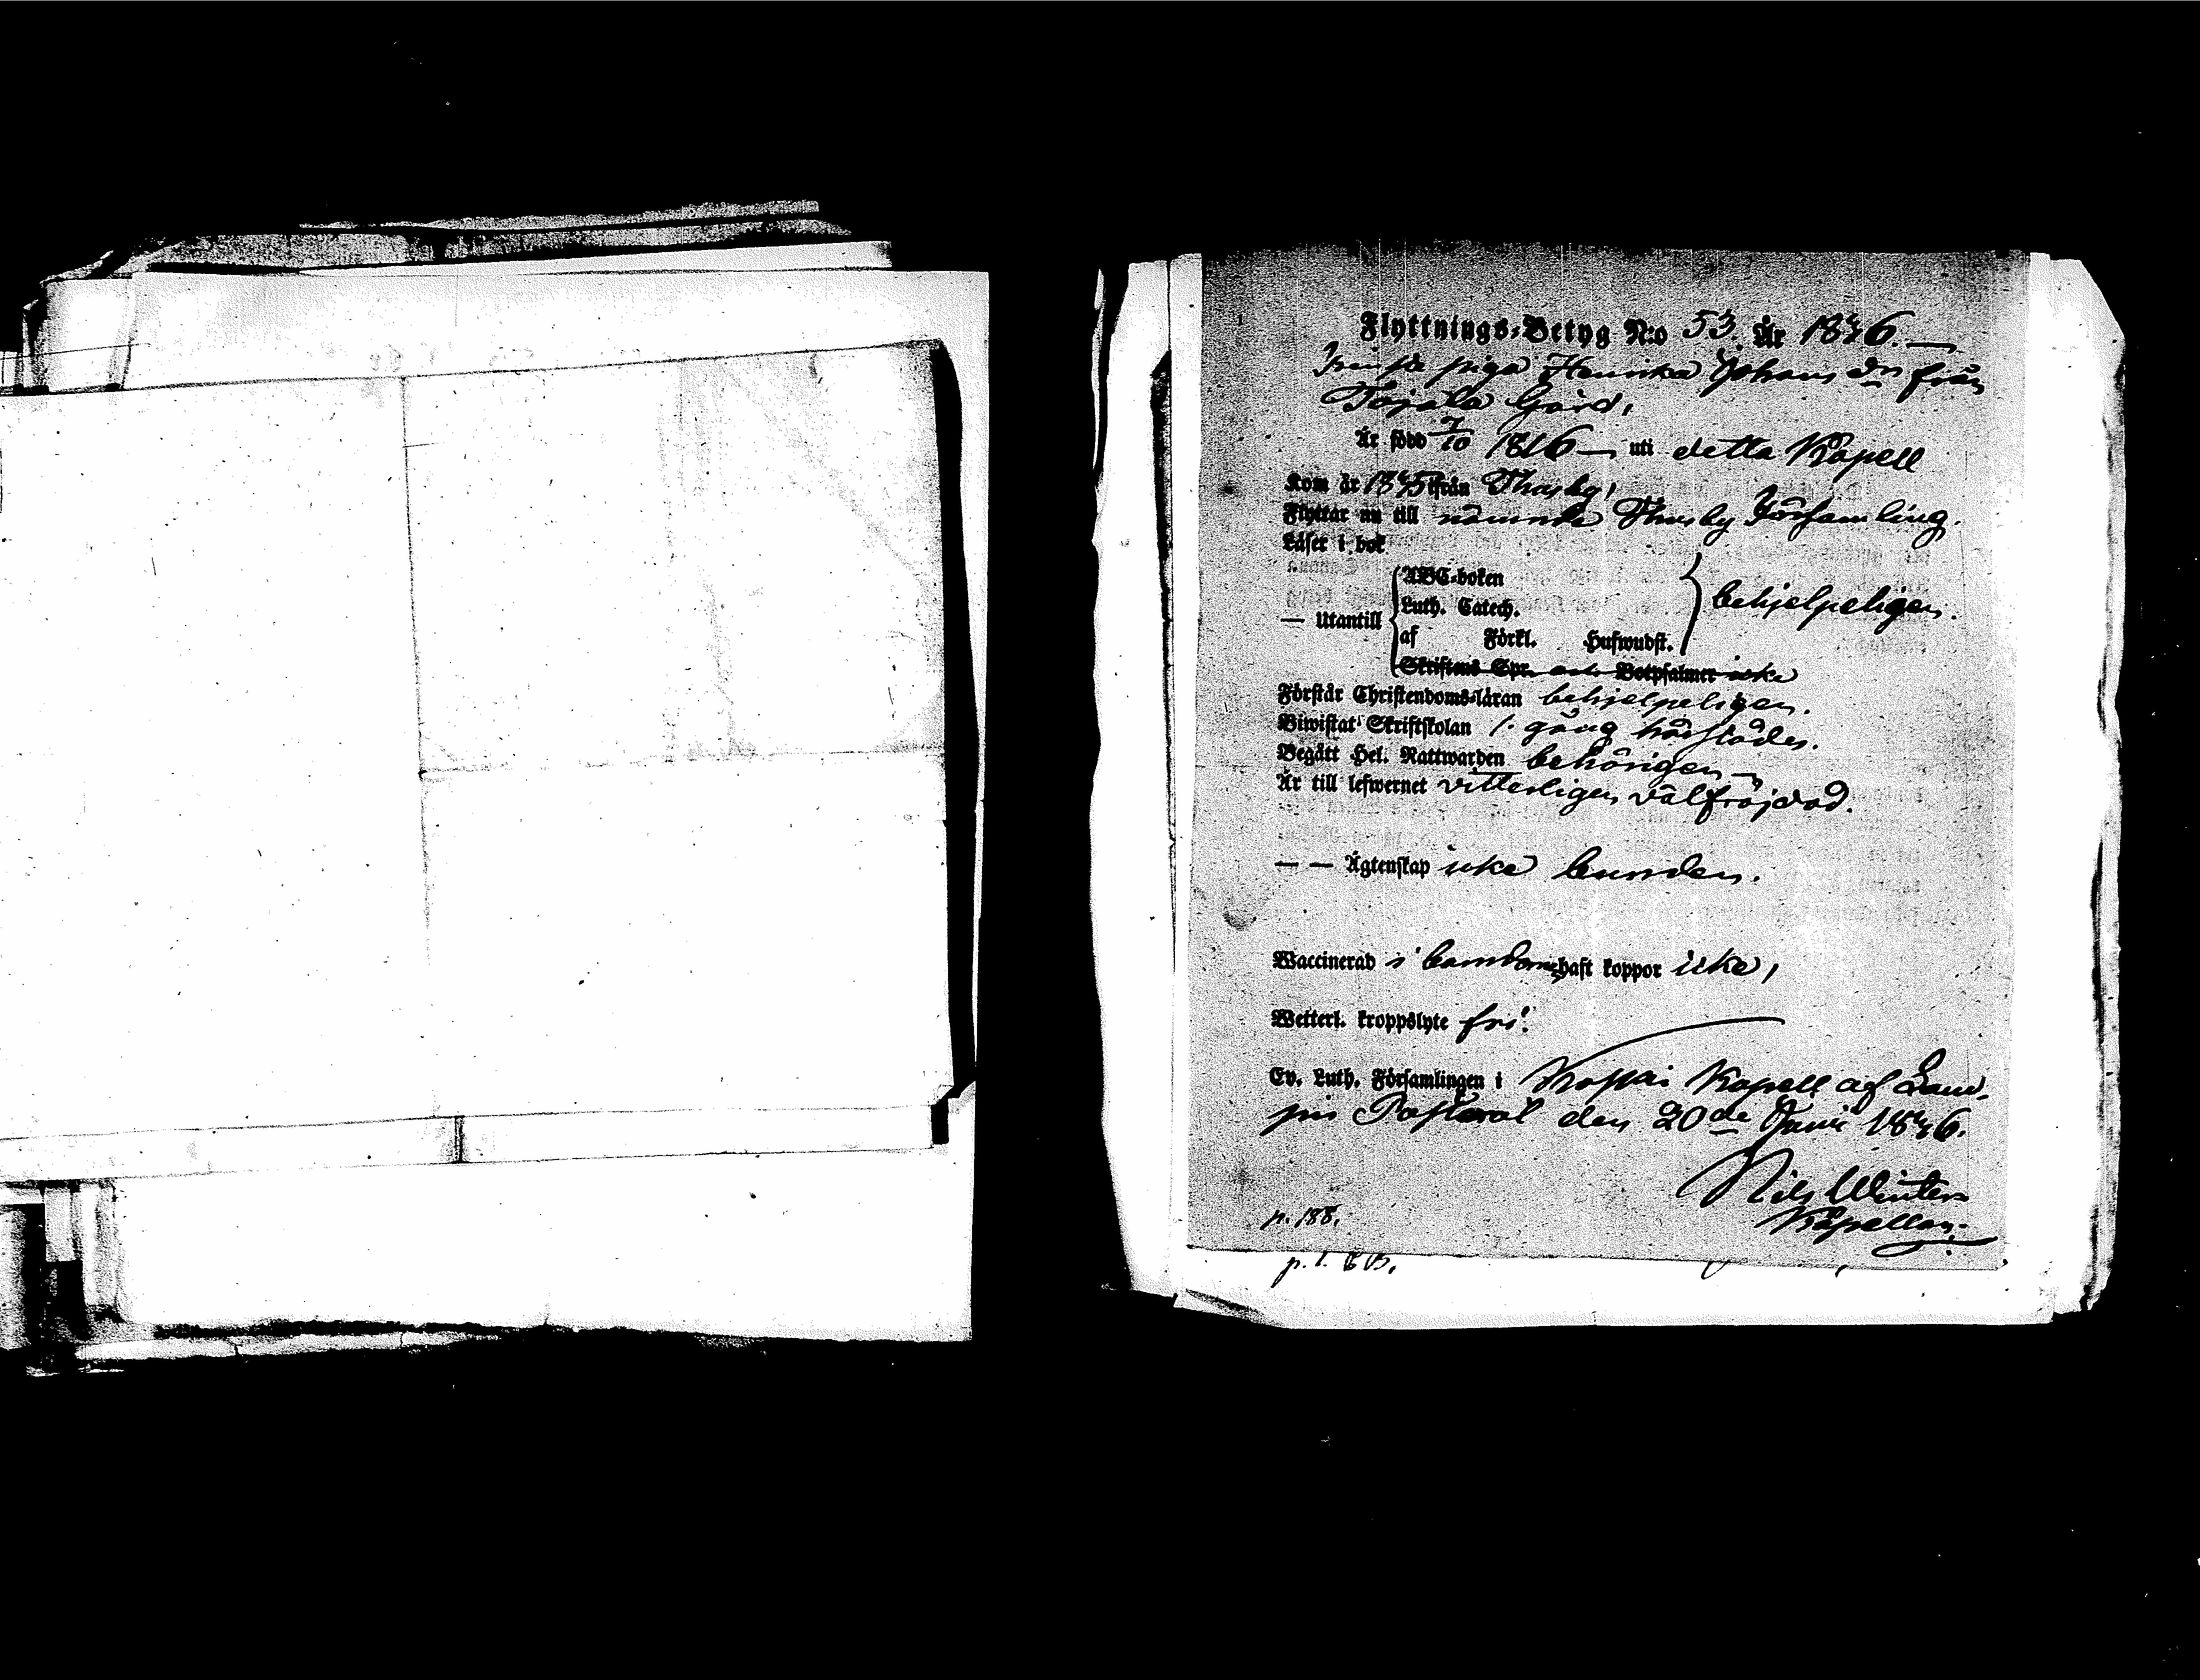 Flyttnings-Betyg N:o 53. År 1846.—
piga Henrika Johans dr från
Tojala Gård,
Är född 7/10 1816 — uti detta Kapell
Kom år 1845 ifrån Thusby,
Flyttar nu till nämnde Thusby Församling.
Läser i bok
ABC-boken
Luth. Catech.
— Utantill behjelpeligen.
af Förkl. Hufwudst.
Skriftens Spr. och Botpsalmer icke
Förstår Christendoms-läran behjelpeligen.
Biwistat Skriftskolan 1. gång härstädes.
Begått Hel. Nattwarden behörigen —
Är till lefwernet vitterligen välfräjdad.
— — Ägtenskap icke bunden.
Waccinerad i barndomen, haft koppor icke,
Wetterl. kroppslyte fri.
Ev. Luth. Församlingen i Koskis Kapell af Lam-
pis Pastorat den 20de Junii 1846.
Nils Winter
Kapellan.
p. 188.
p. 1. C B.